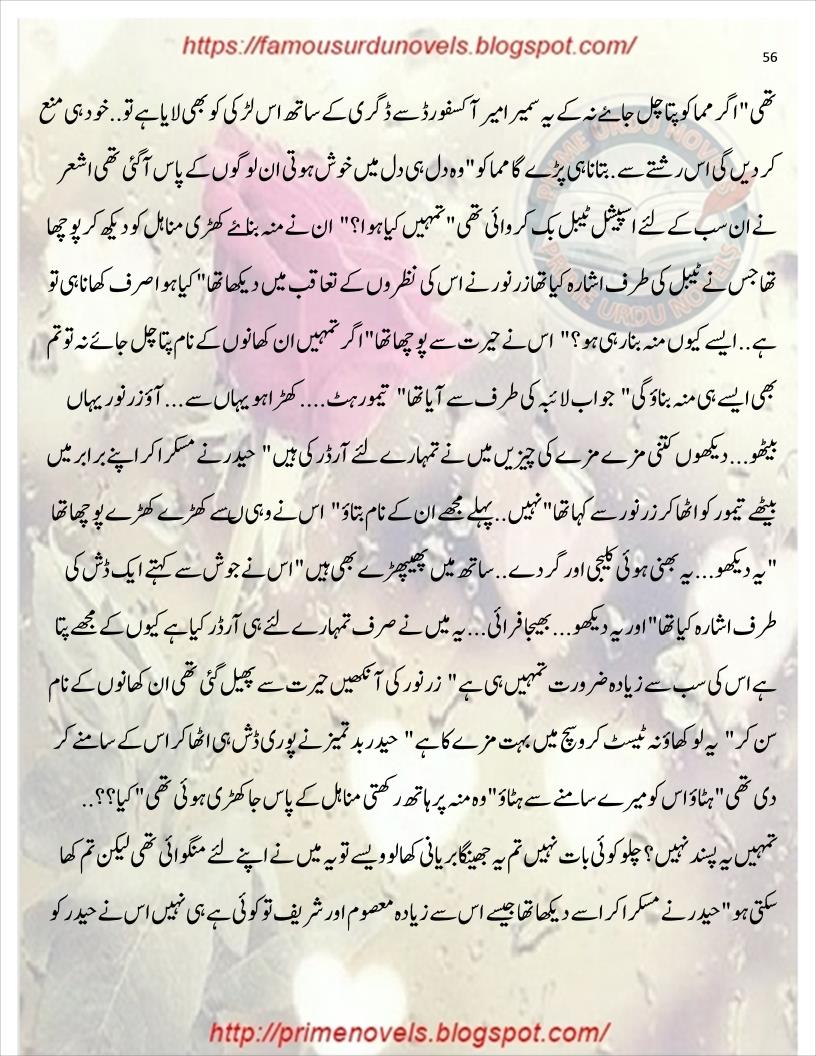 https://famousurdunovels.blogspot.com/
56
تھی"اگر مما کو پتا چل جائے نہ کے یہ سمیر امیر آکسفورڈ سے ڈگری کے ساتھ اس لڑکی کو بھی لایا ہے تو..خود ہی منع
کر دیں گی اس رشتے سے.بتانا ہی پڑے گا مما کو"وہ دل ہی دل میں خوش ہوتی ان لوگوں کے پاس آگئی تھی اشعر
نے ان سب کے لئے اسپیشل ٹیبل بک کروائی تھی"تمہیں کیا ہوا؟" ان نے منہ بنائے کھڑی مناہل کو دیکھ کر پوچھا
تھا جس نے ٹیبل کی طرف اشارہ کیا تھا زرنور نے اس کی نظروں کے تعاقب میں دیکھا تھا"کیا ہوا صرف کھانا ہی تو
ہے..ایسے کیوں منہ بنا رہی ہو؟" اس نے حیرت سے پوچھا تھا"اگر تمہیں ان کھانوں کے نام پتا چل جائے نہ تو تم
بھی ایسے ہی منہ بناؤ گی" جواب لائبہ کی طرف سے آیا تھا" تیمور ہٹ....کھڑا ہو یہاں سے...آؤ زرنور یہاں
بیٹھو...دیکھوں کتنی مزے مزے کی چیزیں میں نے تمہارے لئے آرڈر کی ہیں" حیدر نے مسکرا کر اپنے برابر میں
بیٹھے تیمور کو اٹھا کر زرنور سے کہا تھا"نہیں..پہلے مجھے ان کے نام بتاؤ" اس نے وہی ںسے کھڑے کھڑے پوچھا تھا
"یہ دیکھو...یہ بھنی ہوئی کلیجی اور گردے..ساتھ میں پھیپھڑے بھی ہیں"اس نے جوش سے کہتے ایک ڈش کی
طرف اشارہ کیا تھا"اور یہ دیکھو...بھیجا فرائی...یہ میں نے صرف تمہارے لئے ہی آرڈر کیا ہے کیوں کے مجھے پتا
ہے اس کی سب سے زیادہ ضرورت تمہیں ہی ہے" زرنور کی آنکھیں حیرت سے پھیل گئی تھی ان کھانوں کے نام
سن کر" یہ لو کھاؤ نہ ٹیسٹ کرو سچ میں بہت مزے کا ہے" حیدر بدتمیز نے پوری ڈش ہی اٹھا کر اس کے سامنے کر
دی تھی"ہٹاؤ اس کو میرے سامنے سے ہٹاؤ"وہ منہ پر ہاتھ رکھتی مناہل کے پاس جا کھڑی ہوئی تھی"کیا؟؟..
تمہیں یہ پسند نہیں؟ چلو کوئی بات نہیں تم یہ جھینگا بریانی کھا لو ویسے تو یہ میں نے اپنے لئے منگوائی تھی لیکن تم کھا
سکتی ہو"حیدر نے مسکرا کر اسے دیکھا تھا جیسے اس سے زیادہ معصوم اور شریف تو کوئی ہے ہی نہیں اس نے حیدر کو
PRIME URDU NOVELS
PRIME URDU NOVELS
http://primenovels.blogspot.com/